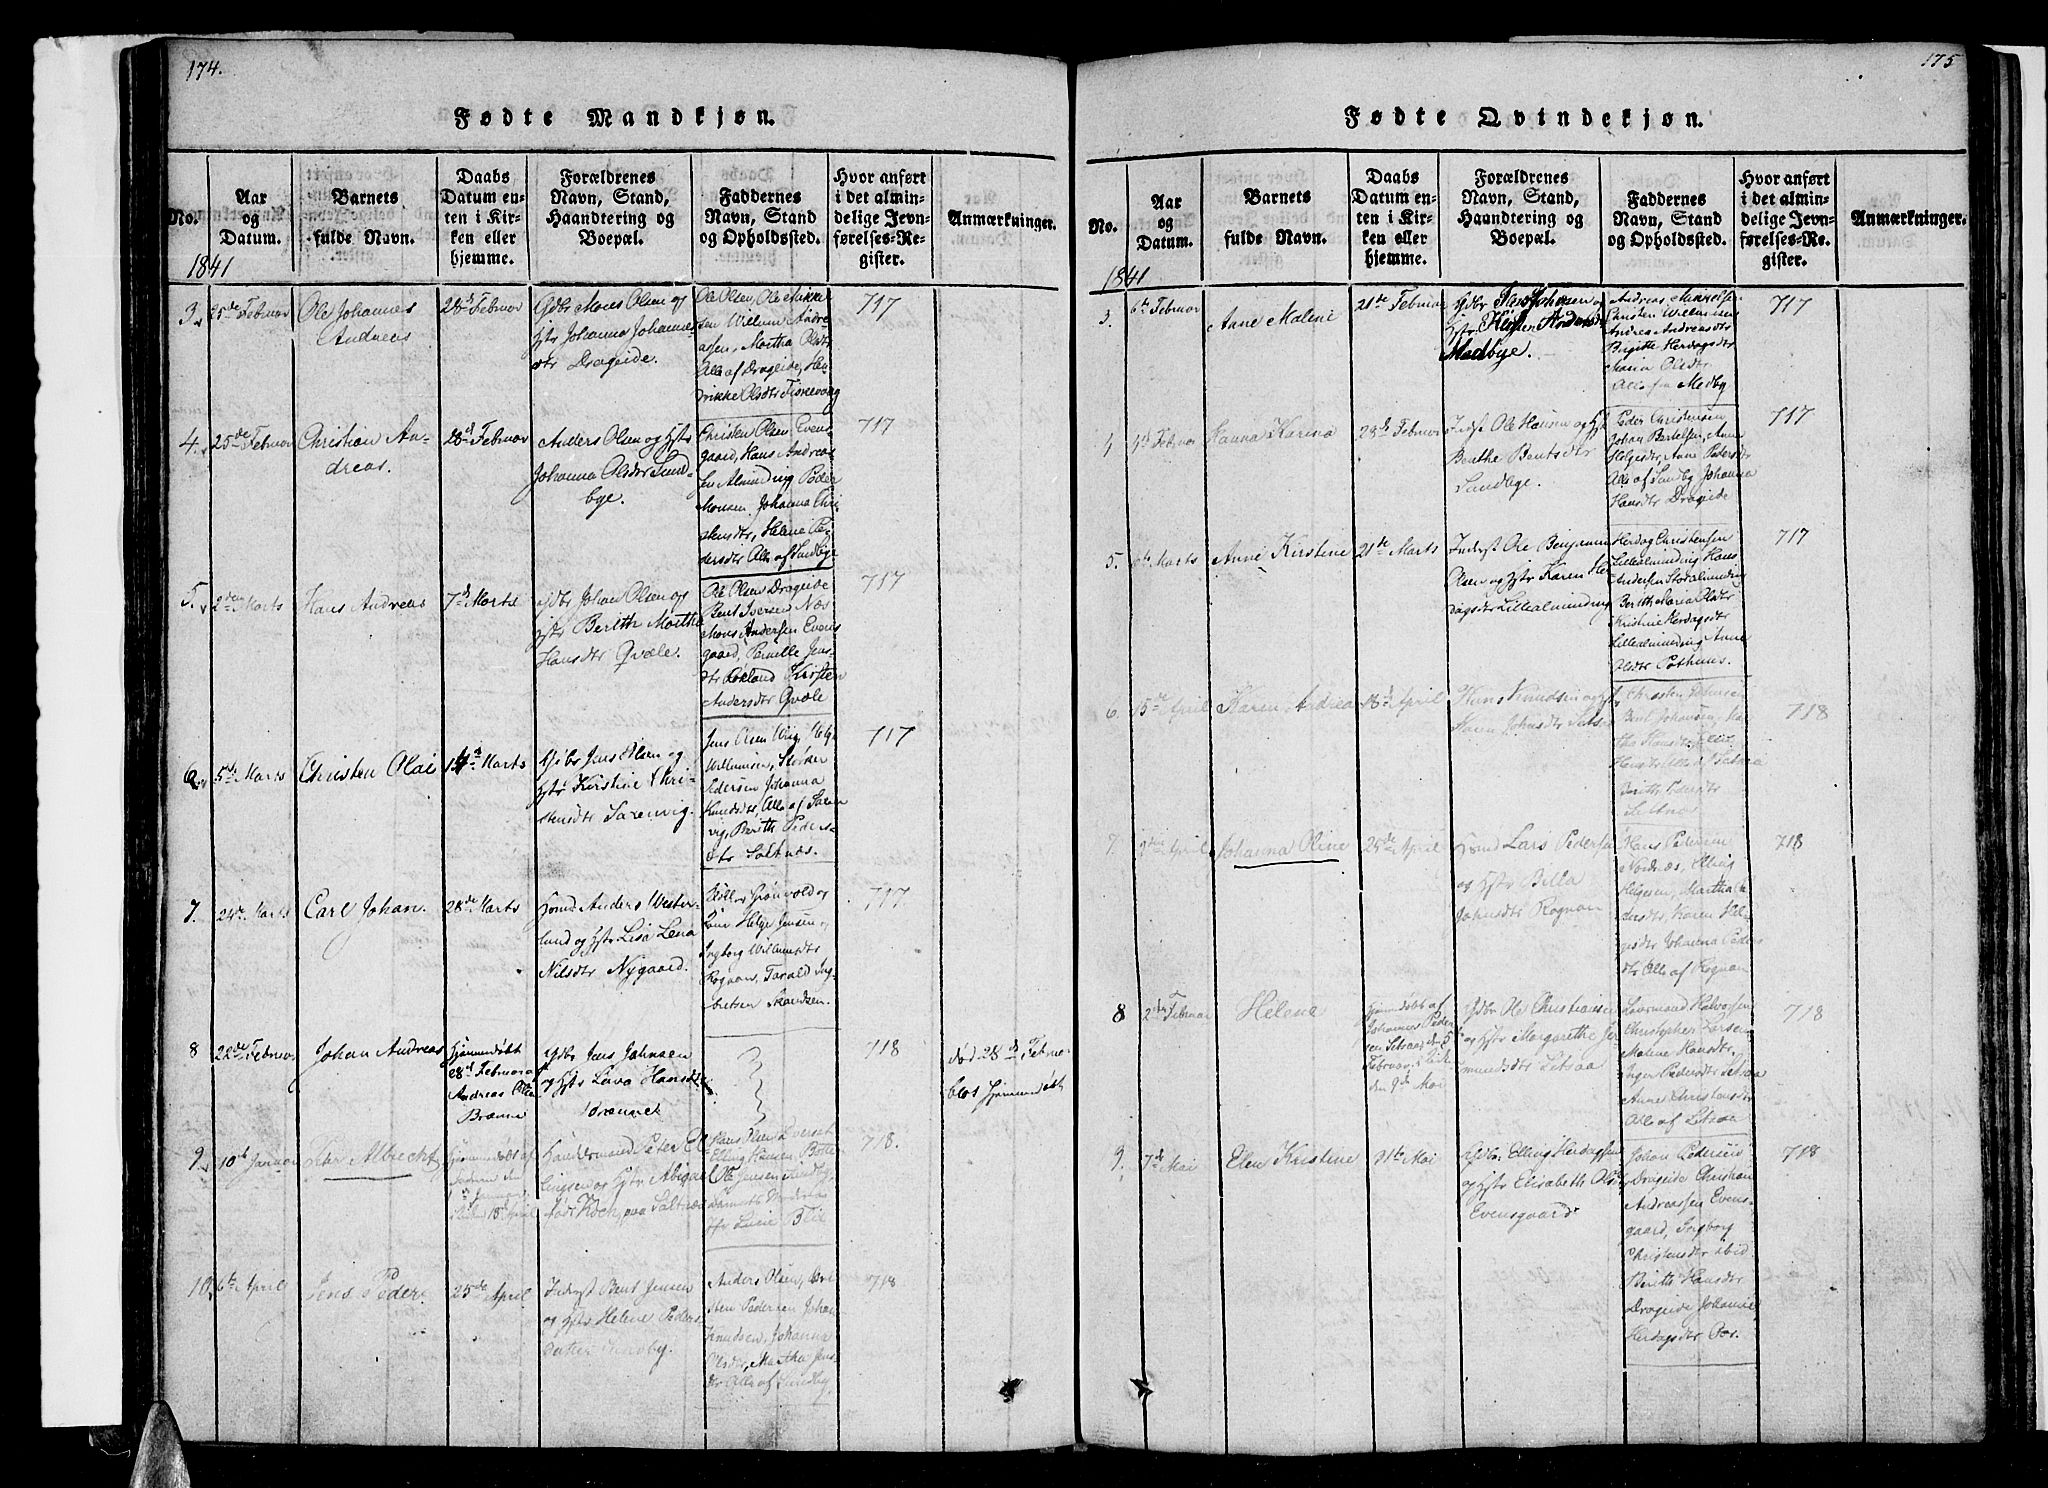 174.
Fødte Mandkjøn.
No.
Aar
og
Datum.
Barnets
fulde Navn.
Daabs
Datum en-
ten i Kir-
ken eller
hjemme.
Forældrenes
Navn, Stand,
Haandtering og
Boepæl.
Faddernes
Navn, Stand
og Opholdssted.
Hvor anført
i det almin-
delige Jevn-
førelses-Re-
gister.
Anmærkninger.
1841
3.
25de Februar
Ole Johannes
Andreas
28de Februar
Gdbr Mons Olsen og
Hstr Johanna Johannes-
dtr Drageide.
Ole Olsen, Ole Mikke
sen Willum Andre-
assen, Martha Olsdtr
Alle af Drageide, Hen-
rikke Olsdtr Fiskevaag
717
4.
25de Februar
Christian An-
dreas.
28d Februar
Anders Olsen og Hstr
Johanna Olsdtr Sund-
bye.
Christen Olsen Evens-
gaard, Hans Andreas-
sen Alminding Peder
Monsen. Johanna Chri-
stensdtr, Helene Pe-
dersdtr Alle af Sundbye
717
5.
2den Marts
Hans Andreas
7d Marts
Gdbr Johan Olsen og
Hstr Berith Martha
Hansdtr Qvæle.
Ole Olsen Drageide
Bent Iversen Næs
Mons Andersen Evens
gaard, Pernille Jens-
dtr Løkland Kirsten
Andersdtr Qvæle
717
6.
5te Marts
Christen Olai
14d Marts
Gdbr Jens Olsen og
Hstr Kirstine Chri-
stensdtr Saxenvig.
Jens Olsen Wig, Helge
Willumsen, Størker
Pedersen Johanna
Knudsdtr, Alle af Saxen
vig, Berith Peders-
dtr Saltnæs.
717
7.
24de Marts
Carl Johan.
28de Marts
Hmd Anders Wester-
lund og Hstr Lisa Lena
Nilsdtr Nygaard.
Møller Grønvold og
Kone Helge Jensen,
Ingborg Willumsdtr
Rognan, Tarald Ing-
bretsen Skandsen.
717
8
22de Februar
Johan Andreas
Hjemmedøbt
28d Februar af
Andreas Olsen
Brænne
Gdbr Jens Johnsen
og Hstr Lava Hansdtr
Brænnet
718
død 28de Februar
blot hjemmedøbt
9.
10de Januar
Peter Albrecht
Hjemmedøbt af
Kirken 18de April
Handelsmand Peter El-
lingsen og Hstr Abigael
født Koch, paa Saltnæs
Hans Olsen Everset
Elling Hansen, Botten
Ole Jensen
718.
10.
6te April
Jens Peder
25de April
Inderst Bent Jensen
og Hstr Helene Peders
datter Sundby.
Anders Olsen, Chri
sten Pedersen Johan
Knudsen, Johanna
Olsdtr, Martha Jens-
dtr Alle af Sundby
718
175
Fødte Qvindekjøn.
No.
Aar
og
Datum.
Barnets
fulde Navn.
Daabs
Datum en-
ten i Kir-
ken eller
hjemme.
Forældrenes
Navn, Stand,
Haandtering og
Boepæl.
Faddernes
Navn, Stand
og Opholdssted.
Hvor anført
i det almin-
delige Jevn-
førelses-Re-
gister.
Anmærkninger.
1841
3.
6te Februar
Anne Malene
21de Februar
Gdbr Hans Johnsen og
Hstr Kirsten Andersdtr
Medbye.
Andreas Mikkelsen
Christen Willumsen
Andrea Andreasdtr
Brigitte Herdagsdtr
Maria Olsdtr
Alle fra Medby
717
4
4de Februar
Hanna Karina
28de Februar
Inderst Ole Hansen og Hstr
Berthe Bentsdtr
Sundbye.
Peder Christensen
Johan Bertelsen, Anne
Helgesdtr, Anne Pedersdtr
Alle af Sundby Johanna
Hansdtr Drageide
717
5.
6te Marts
Anne Kirstine
21de Marts
Inderst Ole Benjamin
Olsen og Hstr Karen Her
dagsdtr Lillealminding
Herdag Christensen
Lillealminding Hans
Andersen Storalminding
Berith Maria Olsdtr
Kristine Herdagsdtr
Lillealminding Anne
Olsdtr Pothuus.
717
6.
15de April
Karen Andrea
18de April
Hans Knudsen og Hstr
Karen Johnsdtr
Christen Petersen
Bent Johansen, Mar
tha Hansdtr,
Berith Pedersdtr
Saltnæs
718
7.
9den April
Johanna Oline
25de April
Hmd Lars Pedersen
og Hstr Billa
Johnsdtr Rognan
Hans Pedersen
Nordnæs, Elling
Helgesen, Martha An
dersdtr, Karen Hel-
gesdtr Johanna Peders
dtr Alle af Rognan
718
8
2den Februar
Helene
Hjemmedøbt af
Johannes Peder
sen Setsaa den 5
Februar i Kirken
den 9de Mai
Gdbr Ole Christiansen
og Hstr Margarethe
Setsaa
Laxmand Halvorsen
Christopher Larsen
Malene Hansdtr,
Inger Pedersdtr Setsaa
Anne Christensdtr
Alle af Setsaa
718
9.
7d Mai
Elen Kristine
31te Mai
Gdbr Elling Herdagssen
og Hstr Elisabeth Olsdtr
Evensgaard
Johan Pedersen
Drageide Christian
Andreassen Evens-
gaard, Ingborg
Christensdtr ibid
Berith Hansdtr
Drageide Johanne
Herdagsdtr Bør.
718